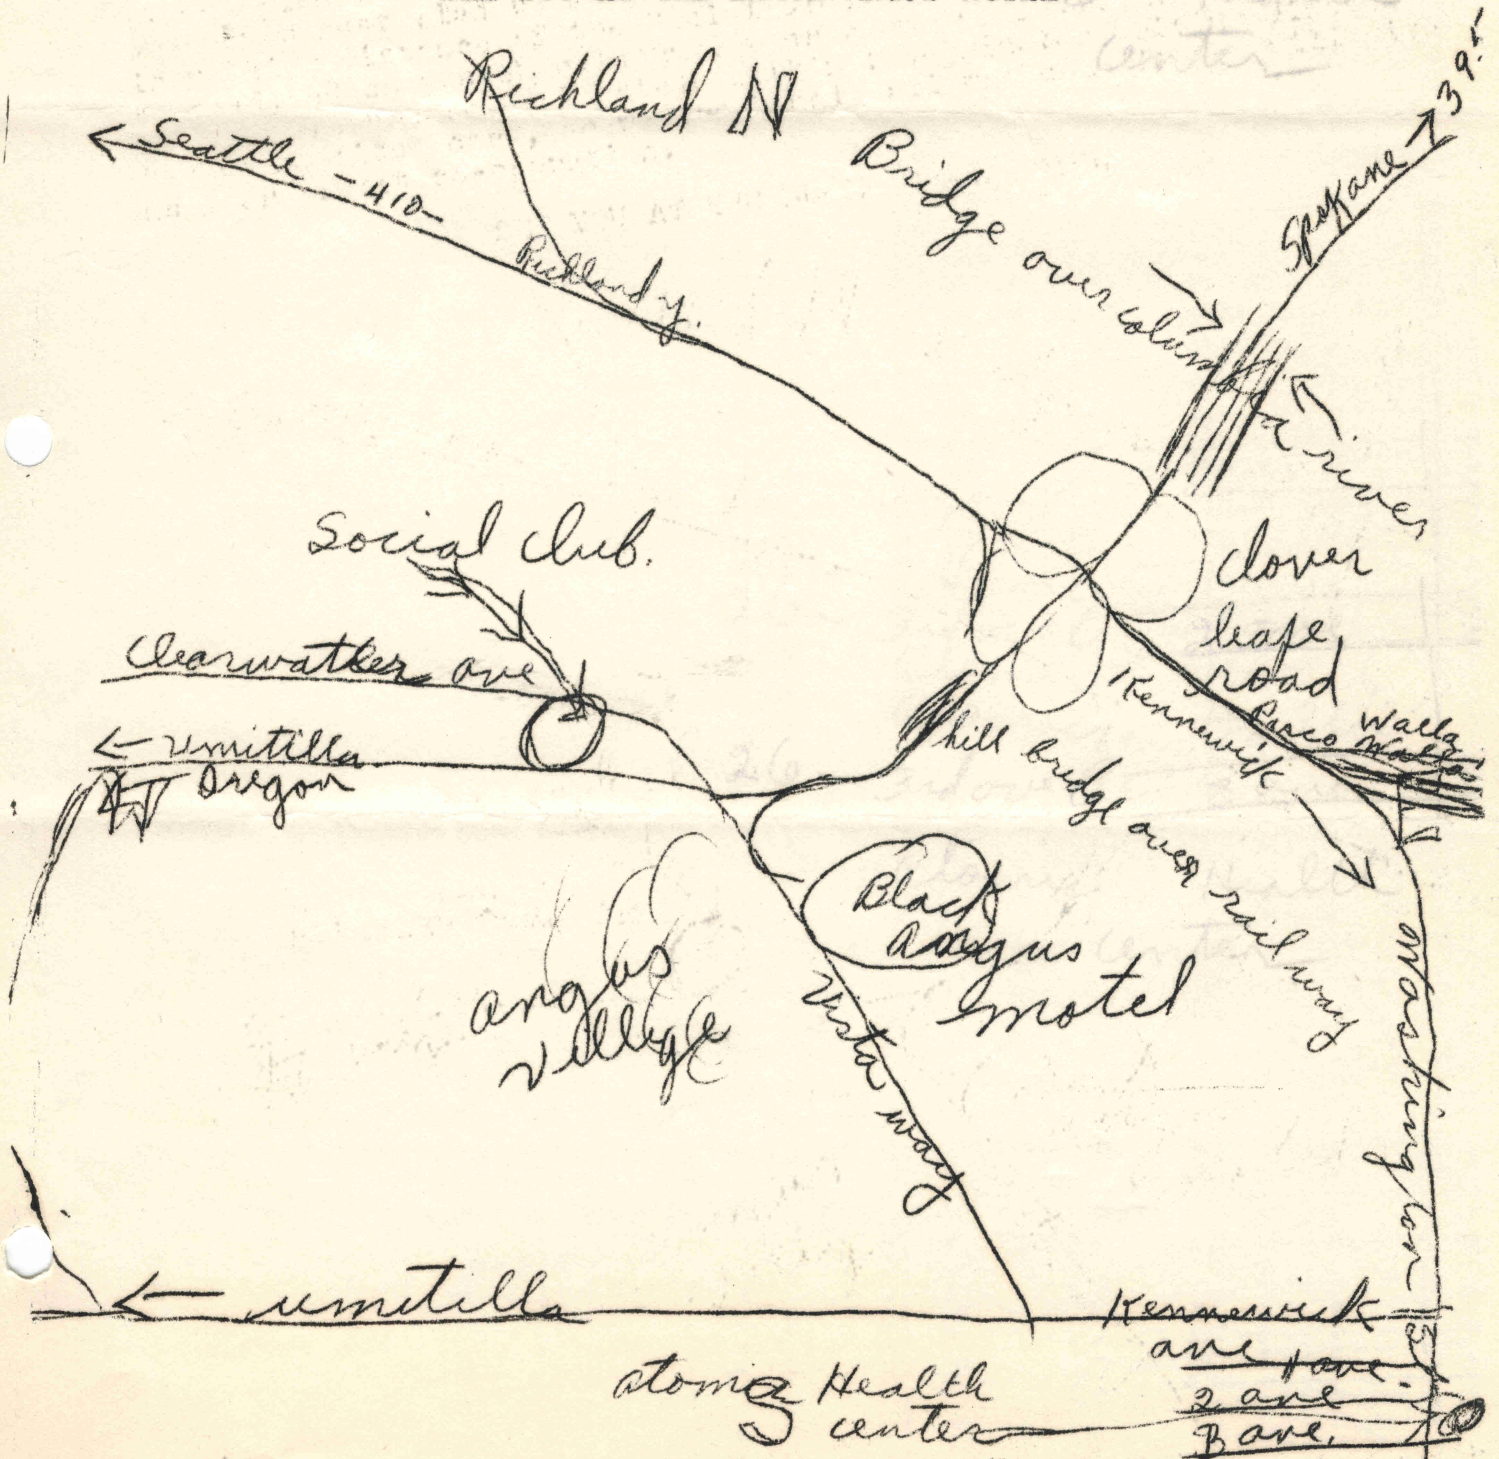 center
Richland N
Seattle - 410-
Richland y.
Bridge over columbia river
Spokane
395
Social club.
clover
leafe
road
Clearwatter ave
umitilla
Oregon
Kennewick
Pasco
Walla
Walla
hill bridge over rail way
Black
angus
motel
angus
villege
Vista way
Washington
umitilla
Kennewick
ave
1 ave.
2 ave
3 ave.
atomic Health
center